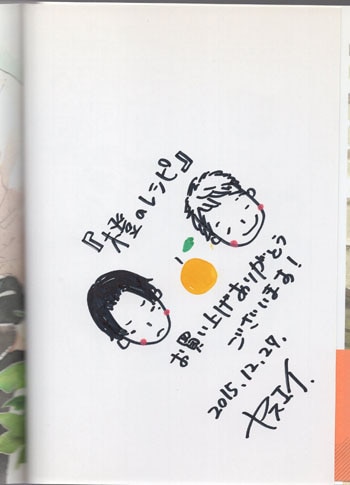 『橙のレシピ』
お買い上げありがとう
ございます!
2015.12.27.
ヤスエイ.